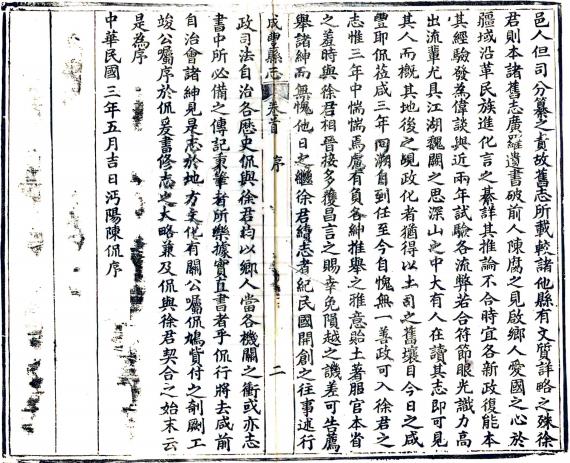 邑人但司分纂之責故舊志所載較諸他縣有文質詳略之殊徐
君則本諸舊志廣羅遺書破前人陳腐之見啟鄉人愛國之心於
疆域沿革民族進化言之綦詳其推論不合時宜各新政復能本
其經驗發為偉談與近兩年試驗各流弊若合符節眼光識力高
出流輩尤具江湖魏闕之思深山之中大有人在讀其志即可見
其人而概其地後之覘政化者猶得以土司之舊壤目今日之咸
豐耶侃莅咸三年
溯自到任至今自愧無一善政可入徐君之
志惟三年中惴惴焉慮有負各紳推舉之雅意貽土著服官本省
之羞時與徐君相晉接多獲昌言之賜幸免隕越之譏差可告薦
舉諸紳而無愧他日之繼徐君續志者紀民國開創之往事述行
咸豐縣志
卷首
序
二
政司法自治各歷史侃與徐君均以鄉人當各機關之衝或亦志
書中所必備之傳記秉筆者所樂據實直書者乎侃行將去咸前
自治會諸紳見是志於地方文化有關公囑侃鳩貲付之剞劂工
竣公屬序於侃爰書修志之大略兼及侃與徐君契合之始末云
是為序
中華民國三年五月吉日沔陽陳侃序